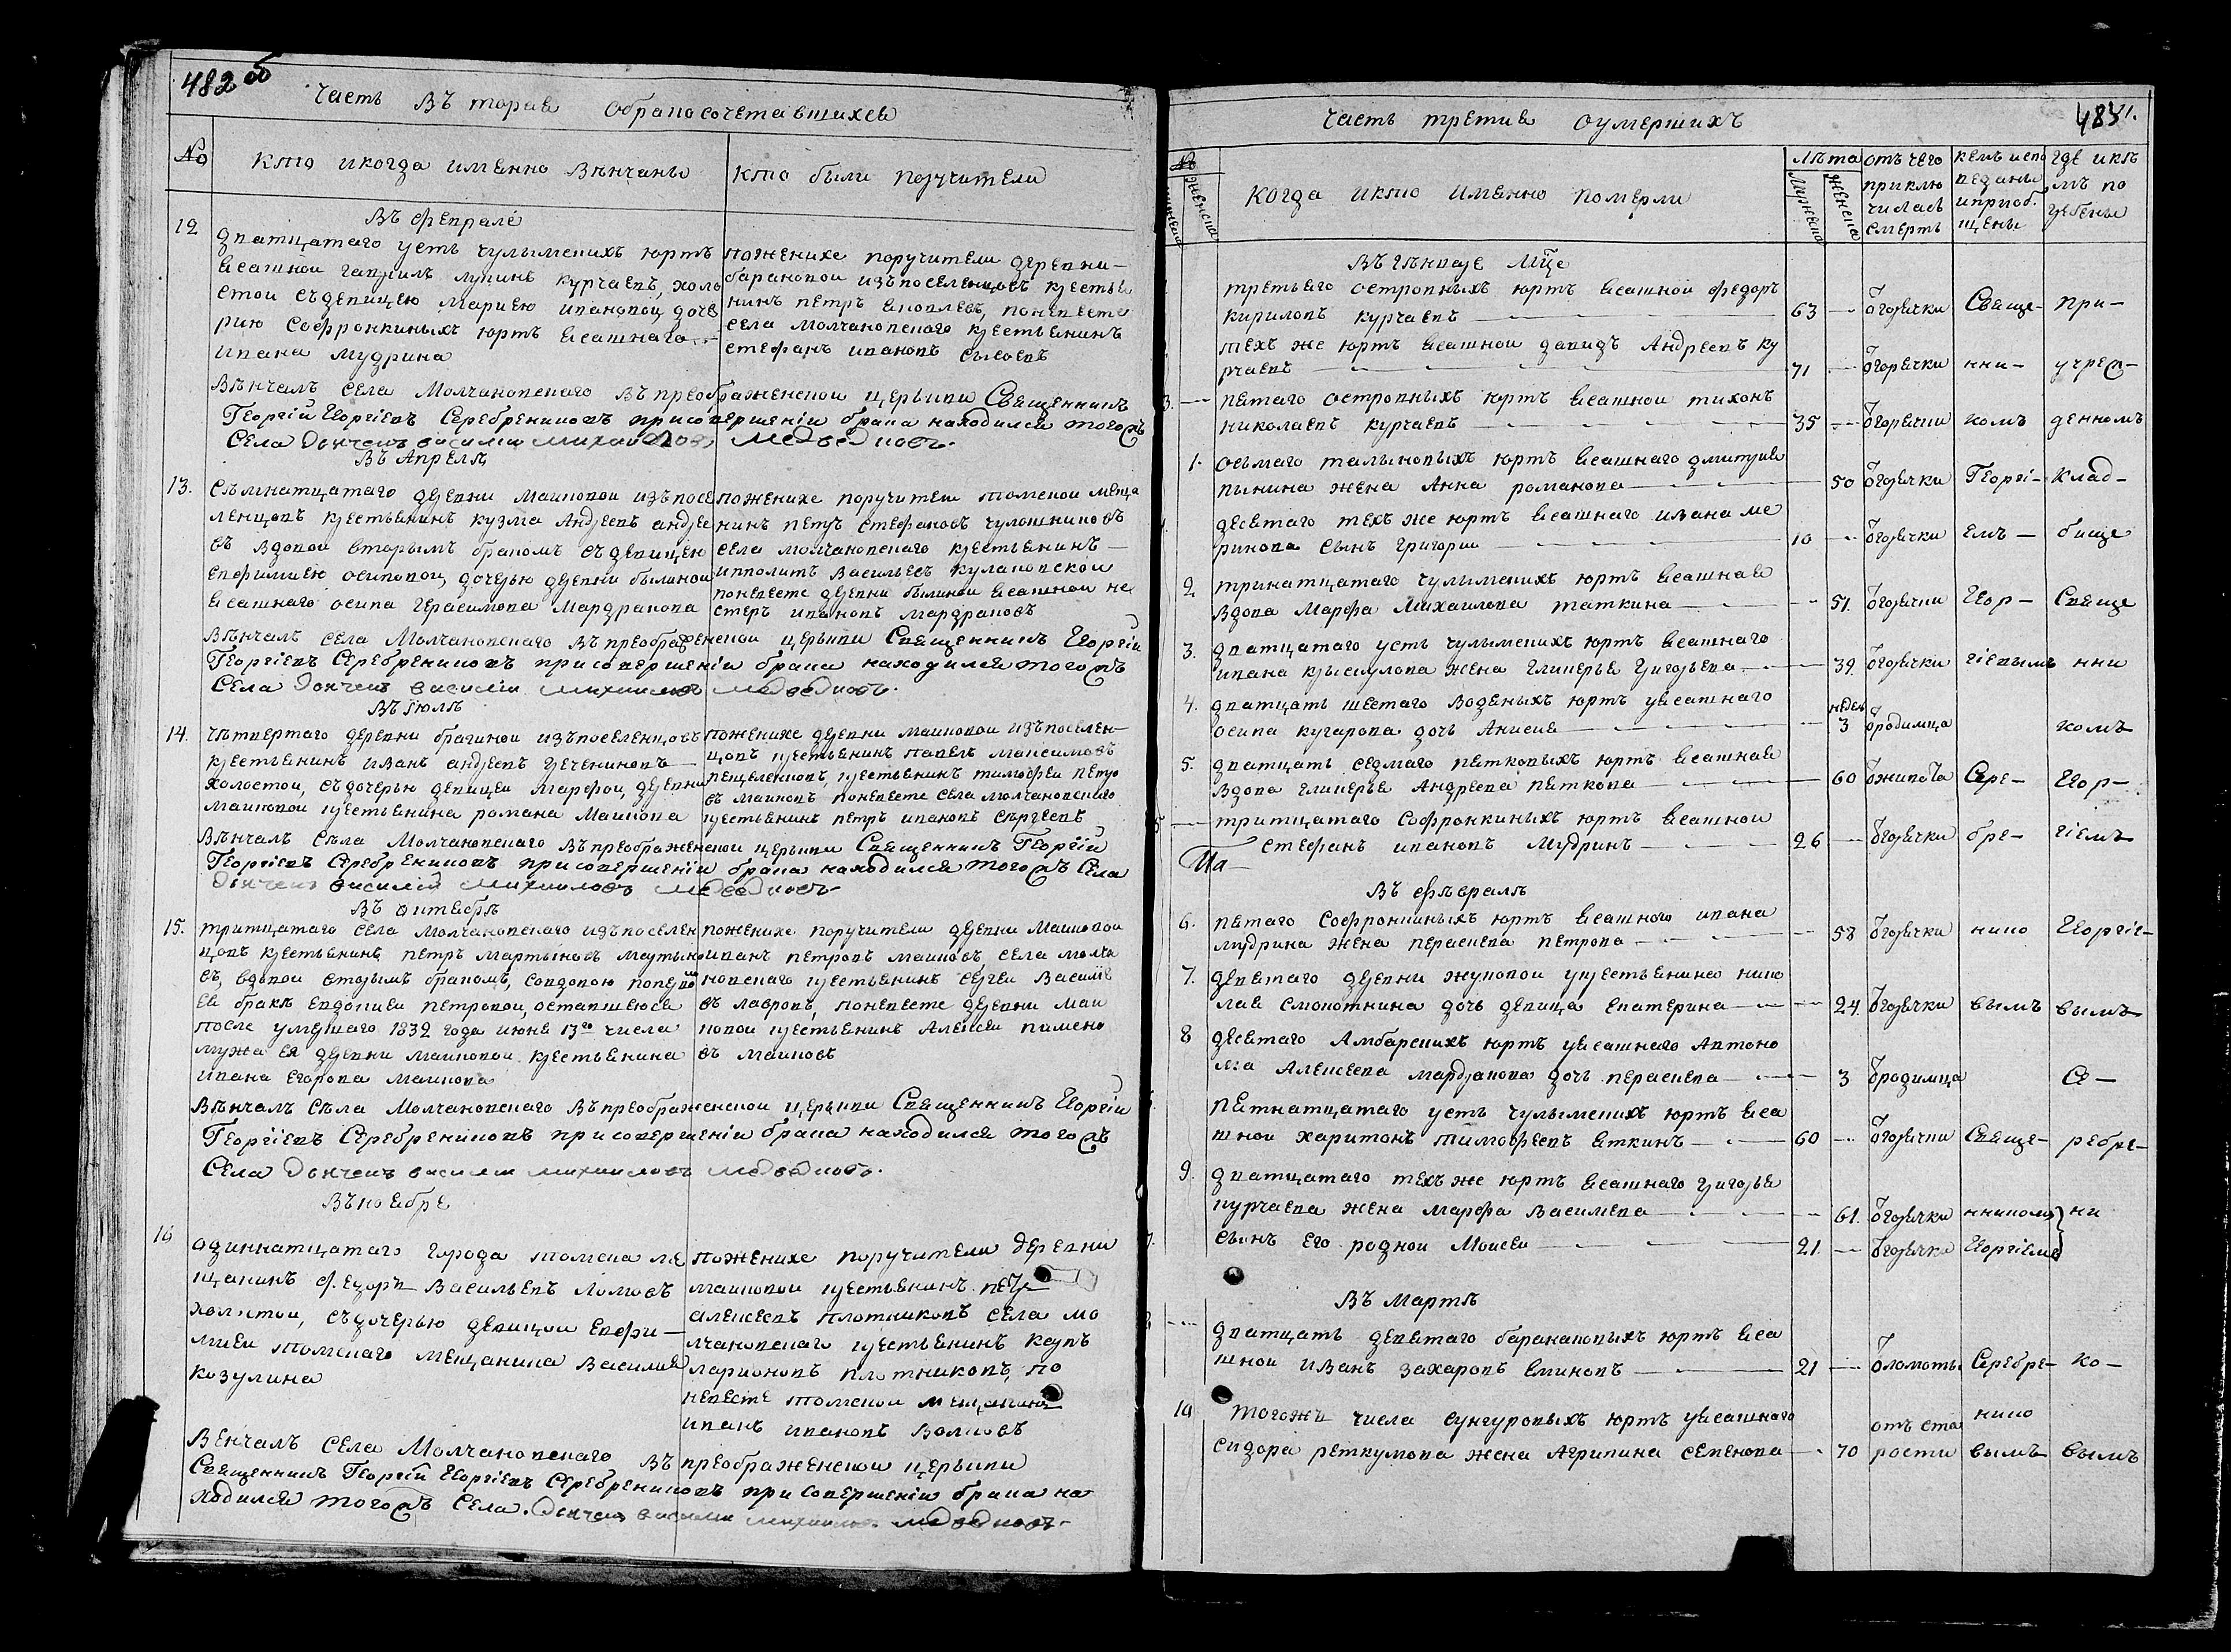 482 об
Часть Въторая Обракосочетавшихся
№
Кто икогда именно Вѣнчаны
Кто были поручители
Въ февралѣ
12
дватцатаго усть чулымскихъ юртъ
ясашной гаврилъ лукинъ курчаевъ, холо
стой съдевицею Мариею ивановой дочѣ
рию Софронкиныхъ юртъ ясашнаго
ивана мудрина
поженихе поручители деревни
барановой изъпоселенцовъ крестья
нинъ петръ яковлевъ, поневесте
села молчановскаго крестьянинъ
стефанъ ивановъ сысоевъ
Вѣнчалъ села Молчановскаго Въпреображенской церькви Священникъ
Георгій Георгіевъ Серебрениковъ присовершеніи брака находился тогожъ
Села Дьячекъ василий михаиловъ медведковъ.
Въ Апрелѣ
13.
Съмнатцатаго деревни Маиковой изъпосе
ленцовъ крестьянинъ кузма Андреевъ андрее
въ вдовой вторымъ бракомъ съдевицею
евфимиею осиповой, дочерью деревни былиной
ясашнаго осипа Герасимова Мардранова
поженихе поручители томской меща
нинъ петръ стефановъ чулошниковъ
села молчановскаго крестьянинъ
ипполитъ Васильевъ кулановской
поневесте деревни былиной ясашной не
стеръ ивановъ мардрановъ
Вѣнчалъ села Молчановскаго Въпреображенской церькви Священникъ Георгій
Георгіевъ Серебрениковъ присовершеніи брака находился тогожъ
Села Дьячекъ василии михаиловъ медведковъ.
Въ Июлѣ
14.
Чѣтвертаго деревни брагиной изъпоселенцовъ
крестьянинъ иванъ андреевъ чечениновъ
холостой, съдочерью девицей Марфой, деревни
маиковой крестьянина романа Маикова
поженихе деревни маиковой изъпоселен
цовъ крестьянинъ павелъ максимовъ
пещеленковъ, крестьянинъ тимофеи петро
въ маиковъ поневесте села молчановскаго
крестьянинъ петръ ивановъ Сѣргеевъ
Вѣнчалъ Сѣла Молчановскаго Въпреображенской церькви Священникъ Георгій
Георгіевъ Серебрениковъ присовершеніи брака находился тогожъ Села
Дьячекъ василий михаиловъ медведковъ
Въ октябрѣ
15.
тритцатаго села Молчановскаго изъпоселен
цовъ крестьянинъ петръ мартыновъ мартыно
въ, вдовой вторымъ бракомъ, совдовою попервой
ея бракѣ евдокией петровой, оставшеюся
после умершаго 1832 года июня 13го числа
мужа ея деревни маиковой крестьянина
ивана Егорова маикова
поженихе поручители деревни Маиковой
иванъ петровъ маиковъ, села молча
новскаго крестьянинъ Сергеи Василье
въ лавровъ, поневесте деревни маи
ковой крестьянинъ Алексеи памено
въ маиковъ
Вѣнчалъ Сѣла Молчановскаго Въпреображенской церькви Священникъ Георгій
Георгіевъ Серебрениковъ присовершеніи брака находился тогожъ
Села Дьячекъ василии михаиловъ медведковъ.
Въноябре
16
одиннатцатаго Города томска ме
щанинъ федоръ Васильевъ Ломовъ
холостой, съдочерью девицой Евфи
миеи томскаго мещанина Василия
козулина
поженихе поручители деревни
маиковой крестьянинъ петръ
алексеевъ плотниковъ села мо
лчановскаго крестьянинъ карпъ
ларионовъ плотниковъ, по
невесте томской мещанинъ
иванъ ивановъ Волковъ
Венчалъ села Молчановскаго въ преображенской церькви
Священникъ Георгій Георгіевъ Серебрениковъ при совершеніи брака на
ходился тогожъ Села. Дьячекъ василии михаиловъ медведковъ

483.
Часть третия Оумершихъ
№
мужеска
женска
Когда икто именно померли
Лѣта
мужеска
женска
отъ чего приклю чилась смерть
кемъ испо веданы иприоб. щены
где икѣ мъ по гребены
Въ Генваре Мце
третьего островныхъ юртъ ясашной федоръ
кириловъ курчаевъ 63 огорячки Свяще- при-
техъ же юртъ ясашной давидъ Андреевъ ку
рчаевъ 71 огорячки нни- учреж-
3. пятаго островныхъ юртъ ясашной тихонъ
николаевъ курчаевъ 35 огорячки комъ денномъ
1. осьмаго талыновыхъ юртъ ясашнаго дмитрия
пынина жена Анна романова 50 огорячки Георгі- клад-
десятаго техъ же юртъ ясашнаго ивана ме
ринова сынъ григорий 10 огорячки емъ бище
2 тринатцатаго чулымскихъ юртъ ясашная
вдова Марфа Михаилова таткина 51. огорячки Геор- Свяще
3. дватцатаго усть чулымскихъ юртъ ясашнаго
ивана крыскулова жена гликерья григорьева 39. огорячки гіевымъ нни
4. дватцать шестаго Воденыхъ юртъ уясашнаго
осипа кугарова дочь Анисия недел 3 ородимца комъ
5. дватцать седмаго петковыхъ юртъ ясашная
вдова гликерья Андреева петкова 60 ожывота Сере- Геор-
тритцатаго Софронкиныхъ юртъ ясашной
стефанъ ивановъ Мудринъ 26 огорячки бре- гіемъ
Въ фѣвралѣ
6. пятаго Софронкиныхъ юртъ ясашного ивана
мудрина жена параскева петрова 58 огорячки нико Георгіе-
7. девятаго деревни жуковой укрестьянина нико
лая смокотнина дочь девица екатерина 24. огорячки вымъ вымъ
8 десятаго Амбарскихъ юртъ уясашнаго Автоно
ма Алексеева мардранова дочь параскева 3 ородимца Се-
пятнатцатаго усть чулымскихъ юртъ яса
шной харитонъ тимофеевъ еткинъ 60 огорячки Свяще- ребре-
9. дватцатаго техъ же юртъ ясашнаго григорья
курчаева жена марфа василиева 61. огорячки нникомъ ни
сынъ его родной Моисеи 21. огорячки Георгіемъ
Въ Мартѣ
дватцать девятаго баранаковыхъ юртъ яса
шной иванъ захаровъ еминовъ 21 оломоты Серебре- ко-
10 тогожъ числа сунгуровыхъ юртъ уясашнаго отъ ста нико
сидора реткумова жена Агрипина семенова 70 рости вымъ вымъ